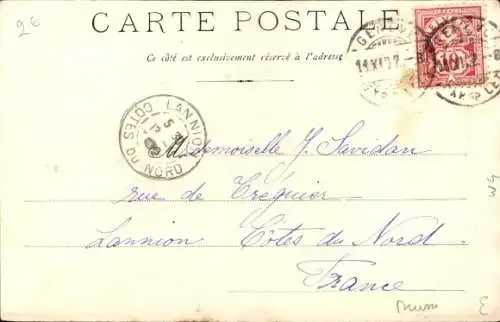 2€
CARTE POSTALE
Ce côté est exclusivement réservé à l'adresse
GENÈVE
11 XI 02
LANNION
CÔTES DU NORD
Mademoiselle J. Savidan
rue de Tréguier
Lannion Côtes du Nord
France